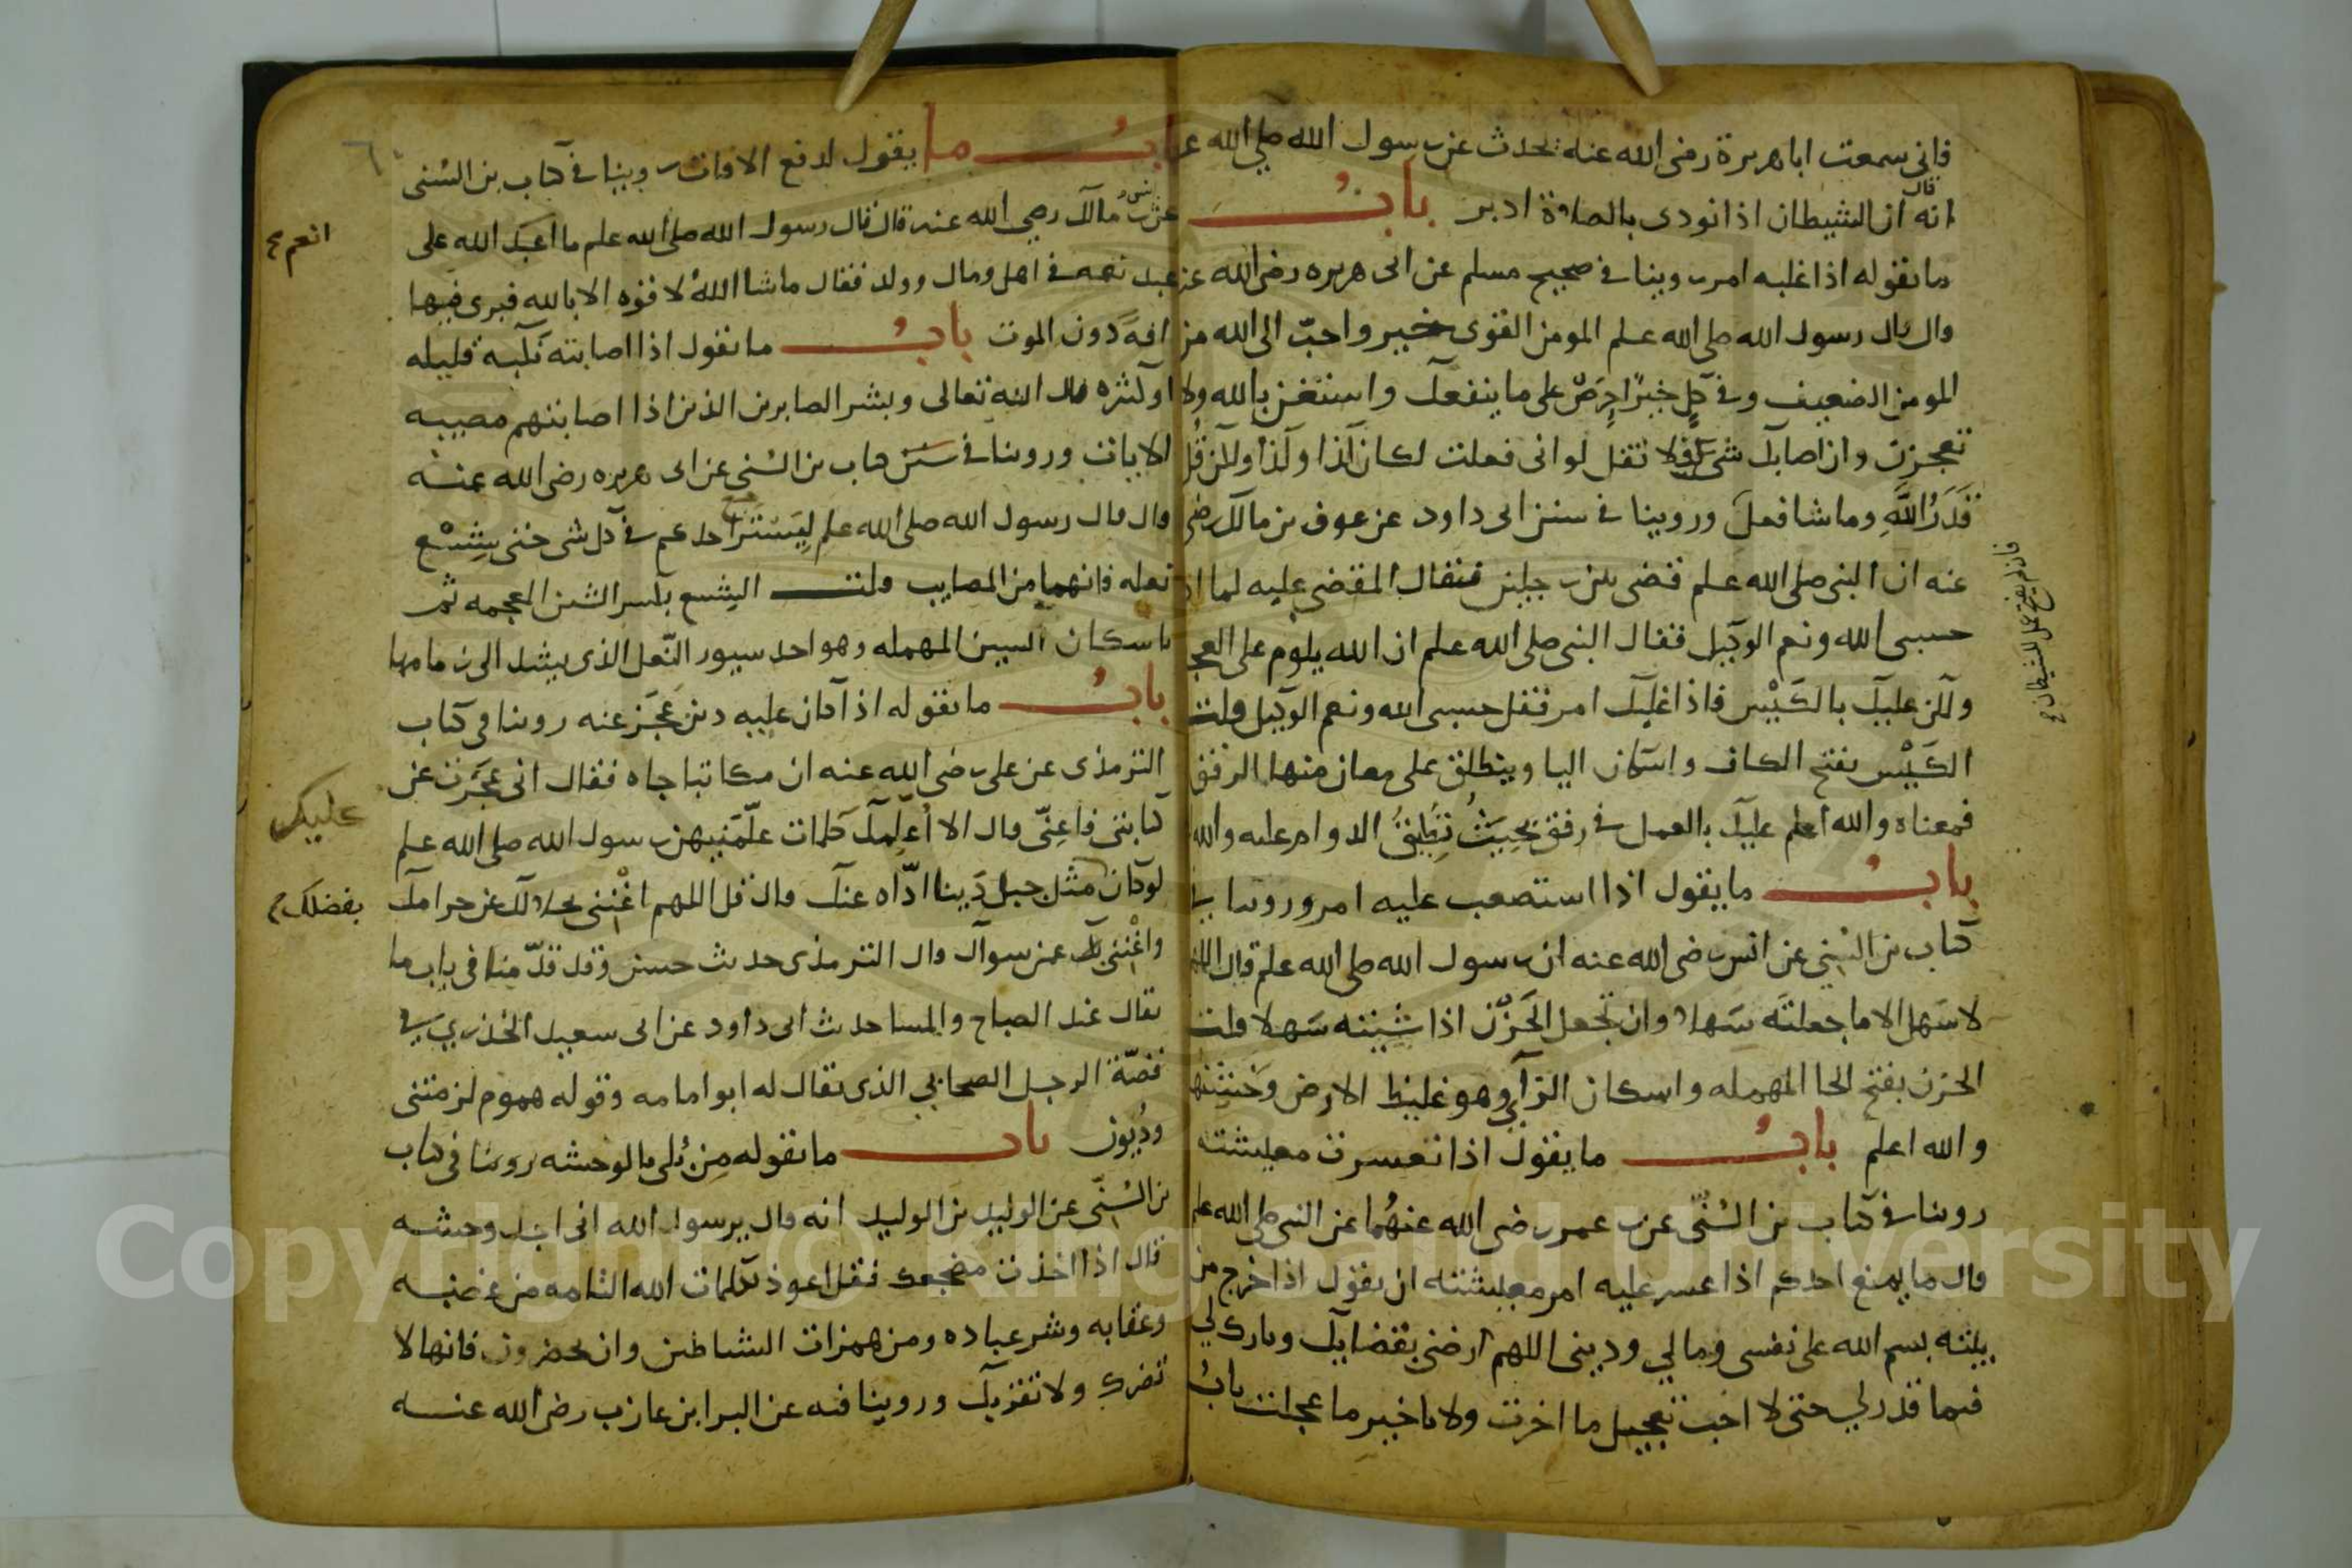 فاني سمعت ابا هريرة رضى الله عنه يحدث عن رسول الله صلى الله
انه قال ان الشيطان اذا نودى بالصلاة ادبر باب
ما يقوله اذا غلبه امر روينا في صحيح مسلم عن ابى هريره رضى الله عنه
قال قال رسول الله صلى الله علم المومن القوى خير واحبّ الى الله من
المومن الضعيف وفي كلٍ خيرٌ احرِصْ على ما ينفعك واستعن بالله ولا
تعجزن وان اصابك شئ فلا تقل لو انى فعلت لكان كذا وكذا ولكن قُل
قَدَرُ اللَّهِ وما شا فعلَ وروينا في سنن ابى داود عن عوف بن مالك رضى
عنه ان النبى صلى الله علم قضى بين رجلين فقال المقضى عليه لما
حسبى الله ونعم الوكيل فقال النبى صلى الله علم ان الله يلوم على العجز
ولكن عليك بالكَيْس فاذا غلبك امر فقل حسبى الله ونعم الوكيل قلت
الكَيْس بفتح الكاف واسكان اليا ويطلق على معان منها الرفق
فمعناه والله اعلم عليك بالعمل في رفق بحيث تُطيق الدوام عليه والله
باب ما يقول اذا استصعب عليه امر وروينا في
كتاب بن السُنى عن انس رضى الله عنه ان رسول الله صلى الله علم قال اللهم
لا سَهل الا ما جعلته سَهلا وان تجعل الحَزْن اذا شئته سَهلا قلت
الحزن بفتح الحا المهمله واسكان الزاي وهو غليظ الارض وخشنها
والله اعلم باب ما يقول اذا تعسرت معيشته
روينا في كتاب بن السُنّى عن بن عمر رضى الله عنهُما عن النبى صلى الله علم
قال ما يمنع احدكم اذا عسر عليه امر معيشته ان يقول اذا خرج من
بيته بسم الله على نفسى ومالي ودينى اللهم ارضنى بقضايك وبارك لي
فيما قدر لي حتى لا احب تعجيل ما اخرت ولا تاخير ما عجلت باب
فان لم يفتح عمل الشيطان
باب ما يقول لدفع الافات روينا في كتاب بن السُنى
عن انس بن مالك رضى الله عنه قال قال رسول الله صلى الله علم ما انعم الله على
عبد نعمه في اهل ومال وولد فقال ما شا اللهُ لا قوه الا بالله فيرى فيها
افةً دون الموت باب ما يقول اذا اصابته نكبه قليله
او كثيره قال الله تعالى وبشر الصابرين الذين اذا اصابتهم مصيبه
الايات وروينا في كتاب بن السُنى عن ابى هريره رضى الله عنه
قال قال رسول الله صلى الله علم لِيَسْتَرجع احدكم في كل شى حتى شِسْع
نعله فانهما من المصايب قلت الشسع بكسر الشين المعجمه ثم
باسكان السين المهمله وهو احد سيور النّعل الذى يشد الى زمامها
باب ما يقوله اذا كان عليه دين عَجَز عنه روينا في كتاب
الترمذى عن على رضى الله عنه ان مكاتبا جاه فقال انى عجَزت عن
كتابتى فاعِنّى قال الا اُعلمك كلمات علّمنيهن رسول الله صلى الله علم
لو كان مثل جبل دَينا ادّاه عنك قال قل اللهم اغْنِنى بحلالك عن حرامك
واغْنِنى بك عمن سواك قال الترمذى حديث حسن وقد قدّمنا في باب ما
يقال عند الصباح والمسا حديث ابى داود عن ابى سعيد الخدري في
قصّة الرجل الصحابى الذى يقال له ابو امامه وقوله هموم لزمتنى
ودُيون باب ما يقوله مِن بُلى بالوحشه روينا في كتاب
بن السُنّى عن الوليد بن الوليد انه قال يرسول الله انى اجد وحشه
قال اذا اخذت مضجعك فقل اعوذ بكلمات الله التامه من غضبه
وعقابه وشر عباده ومن همزات الشياطين وان يحضرون فانها لا
تضرك ولا تقربك وروينا فيه عن البرا ابن عازب رضى الله عنه
انعم
عليك
بفضلك
Copyright © King Saud University